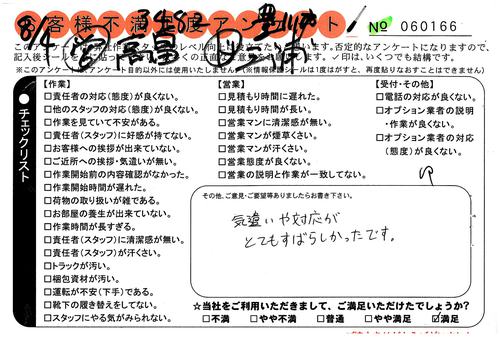 お客様不満足度アンケート
No 060166
8/1
記入後シールを
※このアンケートはアンケート目的以外には使用いたしません(※情報保護シールは1度はがすと、再度貼りなおすことはできません)
チェックリスト
【作業】
□責任者の対応(態度)が良くない。
□他のスタッフの対応(態度)が良くない。
□作業を見ていて不安がある。
□責任者(スタッフ)に好感が持てない。
□お客様への挨拶が出来ていない。
□ご近所への挨拶・気遣いが無い。
□作業開始前の内容確認がなかった。
□作業開始時間が遅れた。
□荷物の取り扱いが雑である。
□お部屋の養生が出来ていない。
□作業時間が長すぎる。
□責任者(スタッフ)に清潔感が無い。
□責任者(スタッフ)が汗くさい。
□トラックが汚い。
□梱包資材が汚い。
□運転が不安(下手)である。
□靴下の履き替えをしてない。
□スタッフにやる気がみられない。
【営業】
□見積もり時間に遅れた。
□見積もり時間が長い。
□営業マンに清潔感が無い。
□営業マンが煙草くさい。
□営業マンが汗くさい。
□営業態度が良くない。
□営業の説明と作業が一致してない。
【受付・その他】
□電話の対応が良くない。
□オプション業者の説明
・作業が良くない。
□オプション業者の対応
(態度)が良くない。
その他、ご意見・ご要望等ありましたらお書き下さい。
気遣いや対応が
とてもすばらしかったです。
☆当社をご利用いただきまして、ご満足いただけたでしょうか?
□不満 □やや不満 □普通 □やや満足 ☑満足